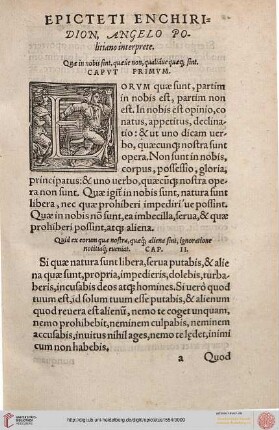 EPICTETI ENCHIRI-
DION, ANGELO PO-
litiano interprete.
Quæ in nobis sint, quæue non, qualiáue quæq; sint.
CAPVT PRIMVM.
EORVM quæ sunt, partim
in nobis est, partim non
est. In nobis est opinio, co
natus, appetitus, declina-
tio: & ut uno dicam uer-
bo, quæcunq; nostra sunt
opera. Non sunt in nobis,
corpus, possessio, gloria,
principatus: & uno uerbo, quæcūq; nostra ope
ra non sunt. Quæ igit̃ in nobis sunt, natura sunt
libera, nec quæ prohiberi impediri'ue possint.
Quæ in nobis nō sunt, ea imbecilla, serua, & quæ
prohiberi possint, atq; aliena.
Quid ex eorum quæ nostra, quæq; aliena sint, ignoratione
notitiaq; eueniat. CAP. II.
Si quæ natura sunt libera, serua putabis, & alie
na quæ sunt, propria, impedieris, dolebis, turba-
beris, incusabis deos atq; homines. Si uerò quod
tuum est, id solum tuum esse putabis, & alienum
quod reuera est alienū, nemo te coget unquam,
nemo prohibebit, neminem culpabis, neminem
accusabis, inuitus nihil ages, nemo te lædet, inimi
cum non habebis,
a Quod